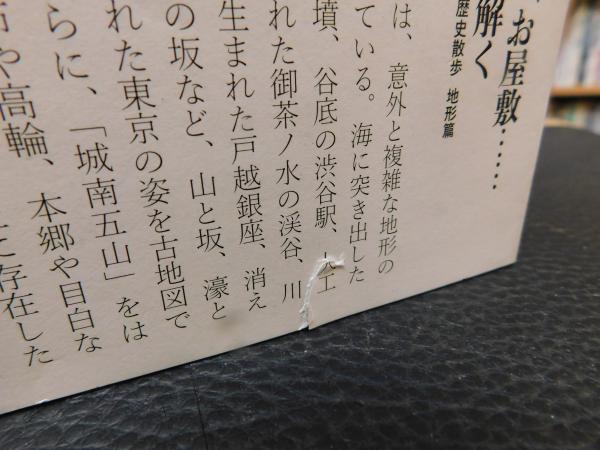 お屋敷……
解く
歴史散歩 地形篇
は、意外と複雑な地形の
ている。海に突き出した
墳、谷底の渋谷駅、人工
れた御茶ノ水の渓谷、川
生まれた戸越銀座、消え
の坂など、山と坂、濠と
れた東京の姿を古地図で
らに、「城南五山」をは
や高輪、本郷や目白な
存在した